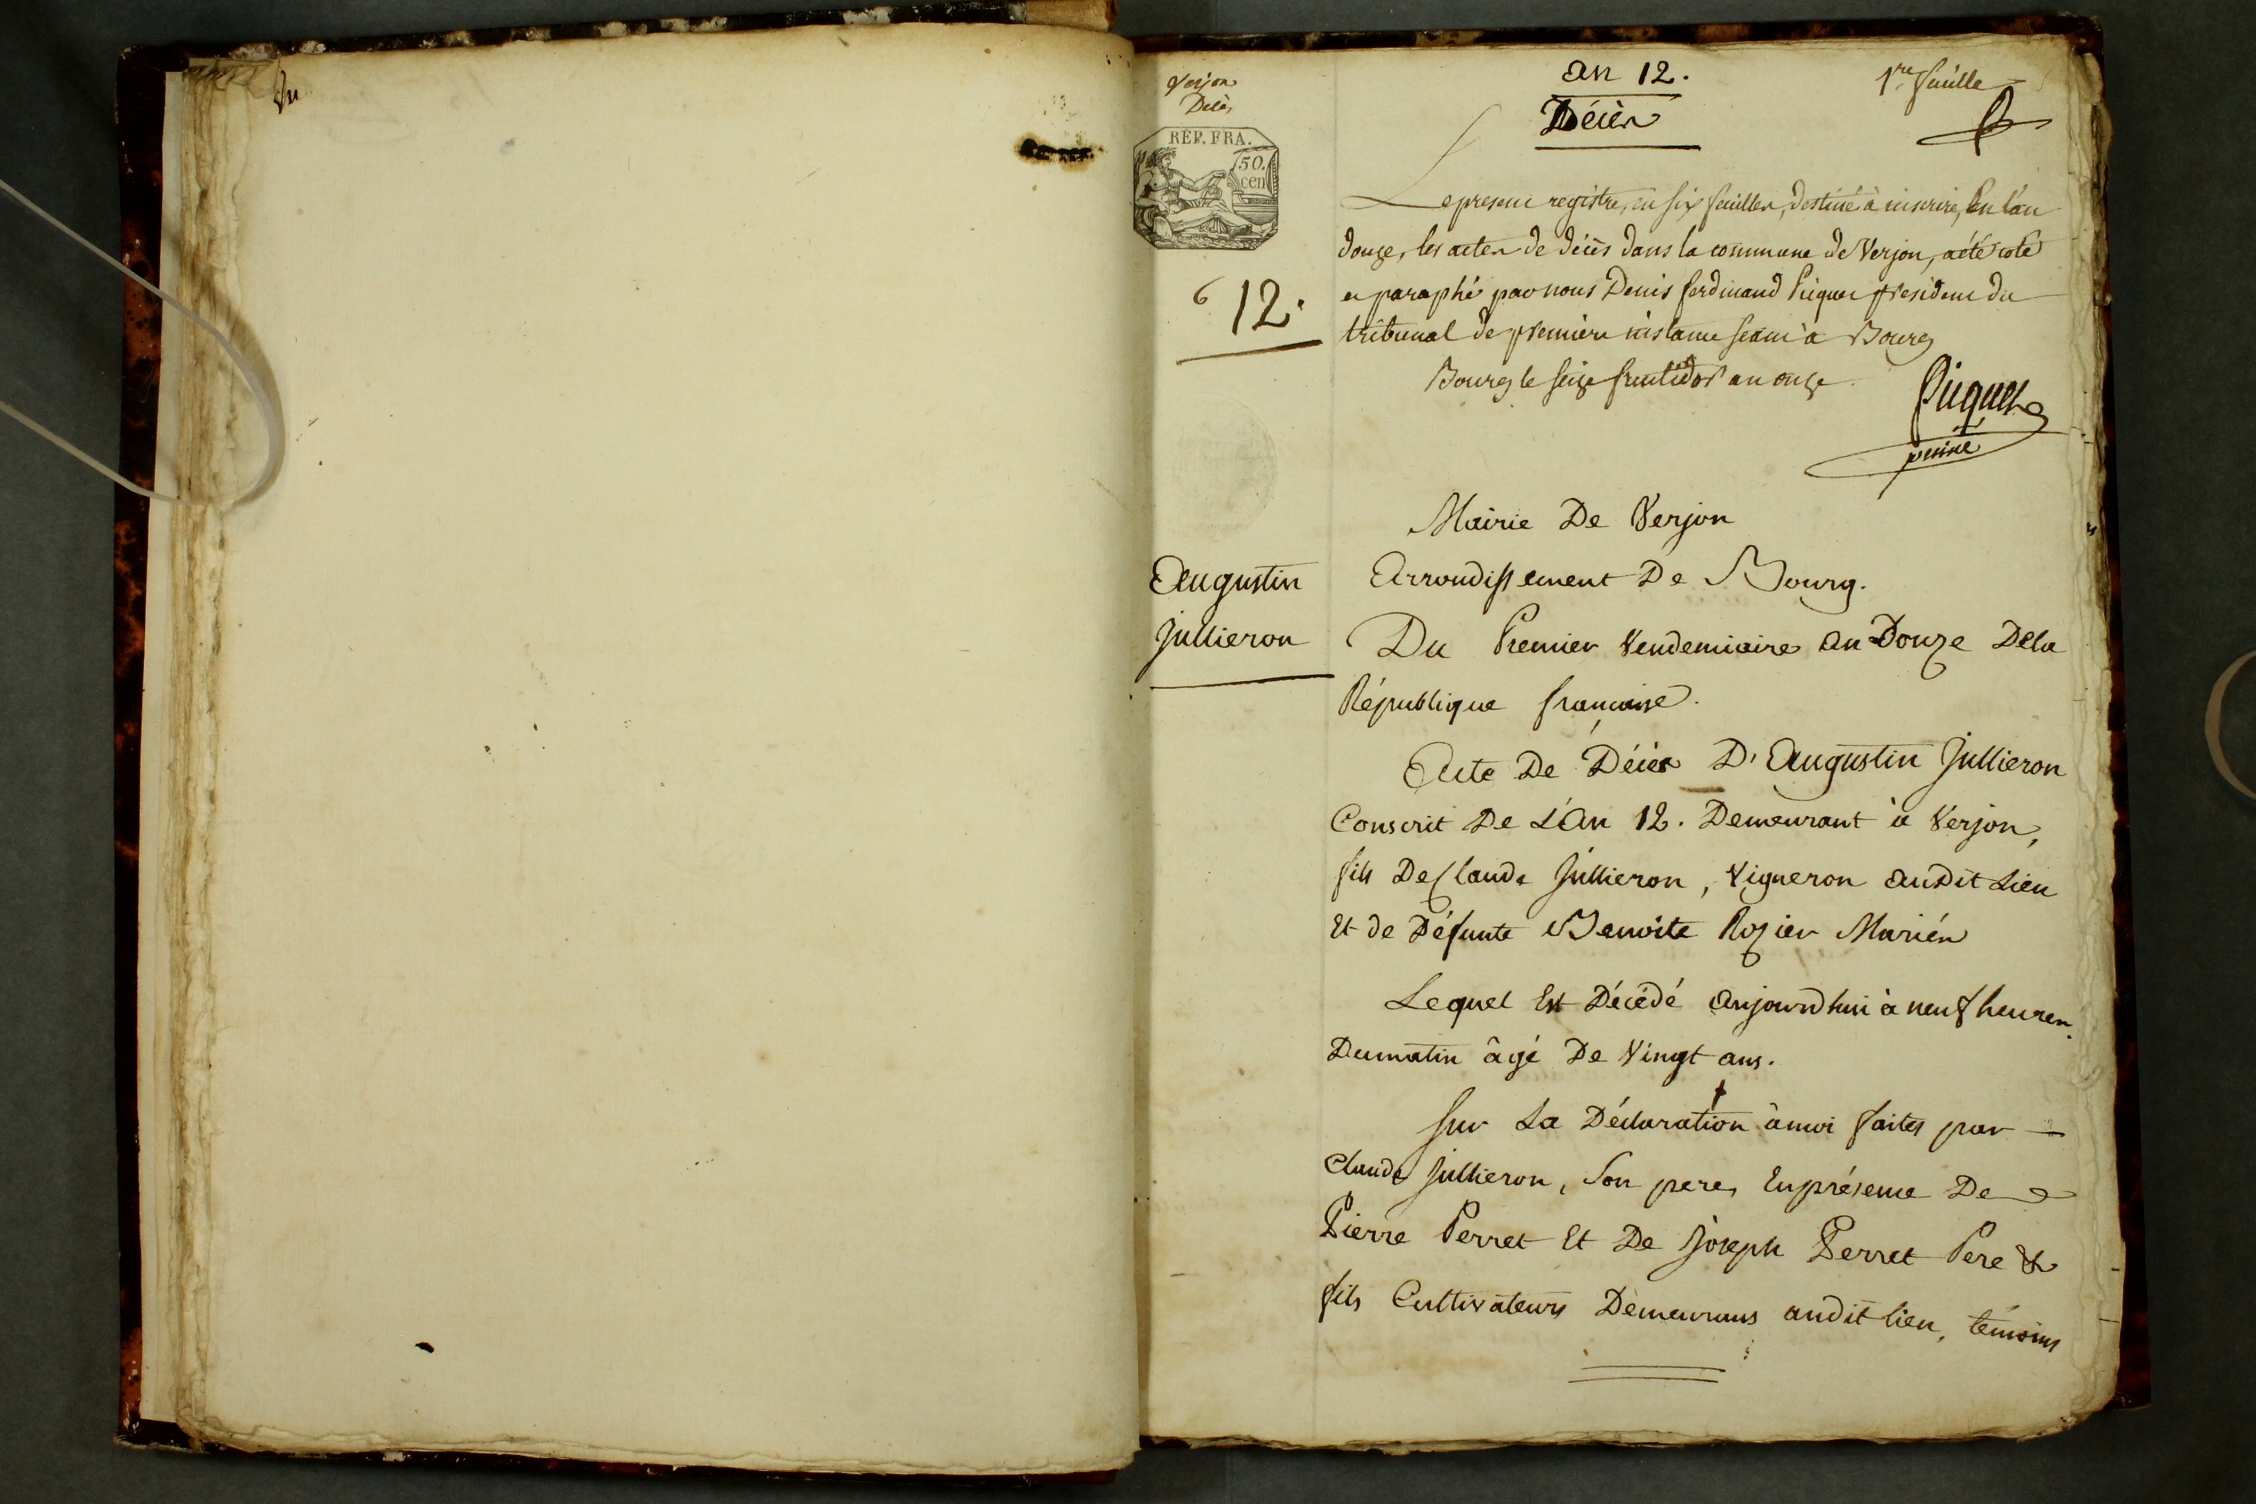 Verjon
Décès
an 12.
Décès
1re feuille
REP. FRA.
50.
cen
Le present registre, en six feuilles, destiné à inscrire, En l'an
douze, les actes de décès dans la commune de Verjon, a été coté
et paraphé par nous Denis ferdinand Picquet president du
tribunal de première instance séant à Bourg
Bourg le seize fructidor an onze
Picquet
12.
Mairie De Verjon
Arrondissement De Bourg.
Augustin
Jullieron
Du Premier Vendemiaire an Douze Dela
République francaise.
Acte De Décès D'Augustin Jullieron
Conscrit De L'An 12. Demeurant à Verjon,
fils De Claude Jullieron, Vigneron audit Lieu
Et de Défunte Benoite Rozier Mariés
Lequel Est Décédé aujourdhui à neuf heures
Dumatin âgé De Vingt ans.
Sur La Déclaration àmoi faites par
Claude Jullieron, Son pere, Enprésence De
Pierre Perret Et De Joseph Perret Pere &
fils Cultivateurs Demeurans audit lieu, témoins